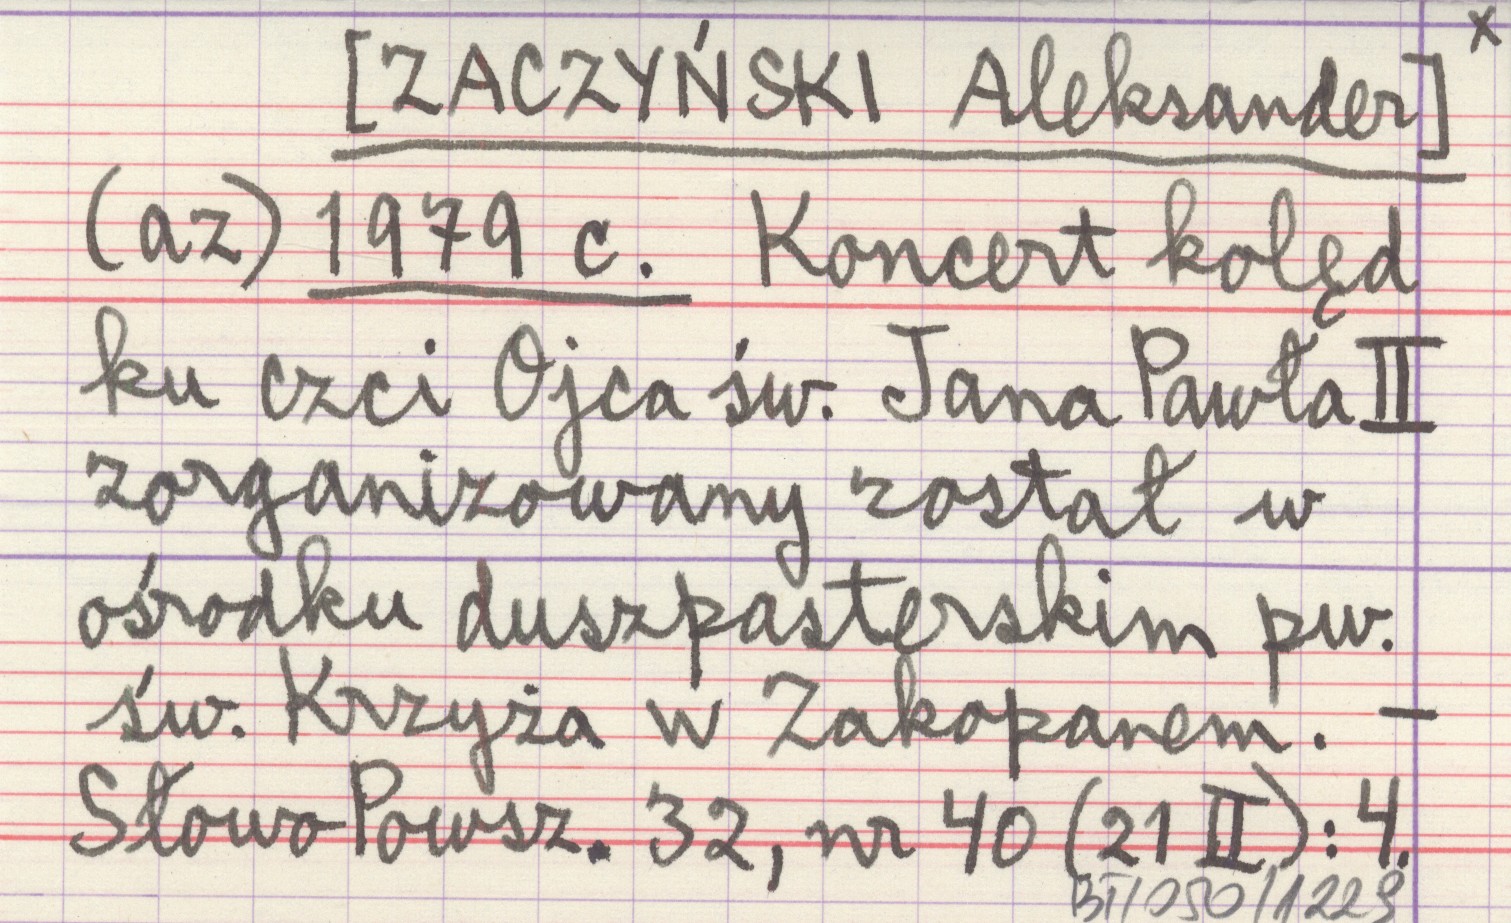 x
[ZACZYŃSKI Aleksander]
(az) 1979 c. Koncert kolęd
ku czci Ojca św. Jana Pawła II
zorganizowany został w
ośrodku duszpasterskim pw.
św. Krzyża w Zakopanem. –
Słowo Powsz. 32, nr 40 (21 II): 4.
BT/050/1223